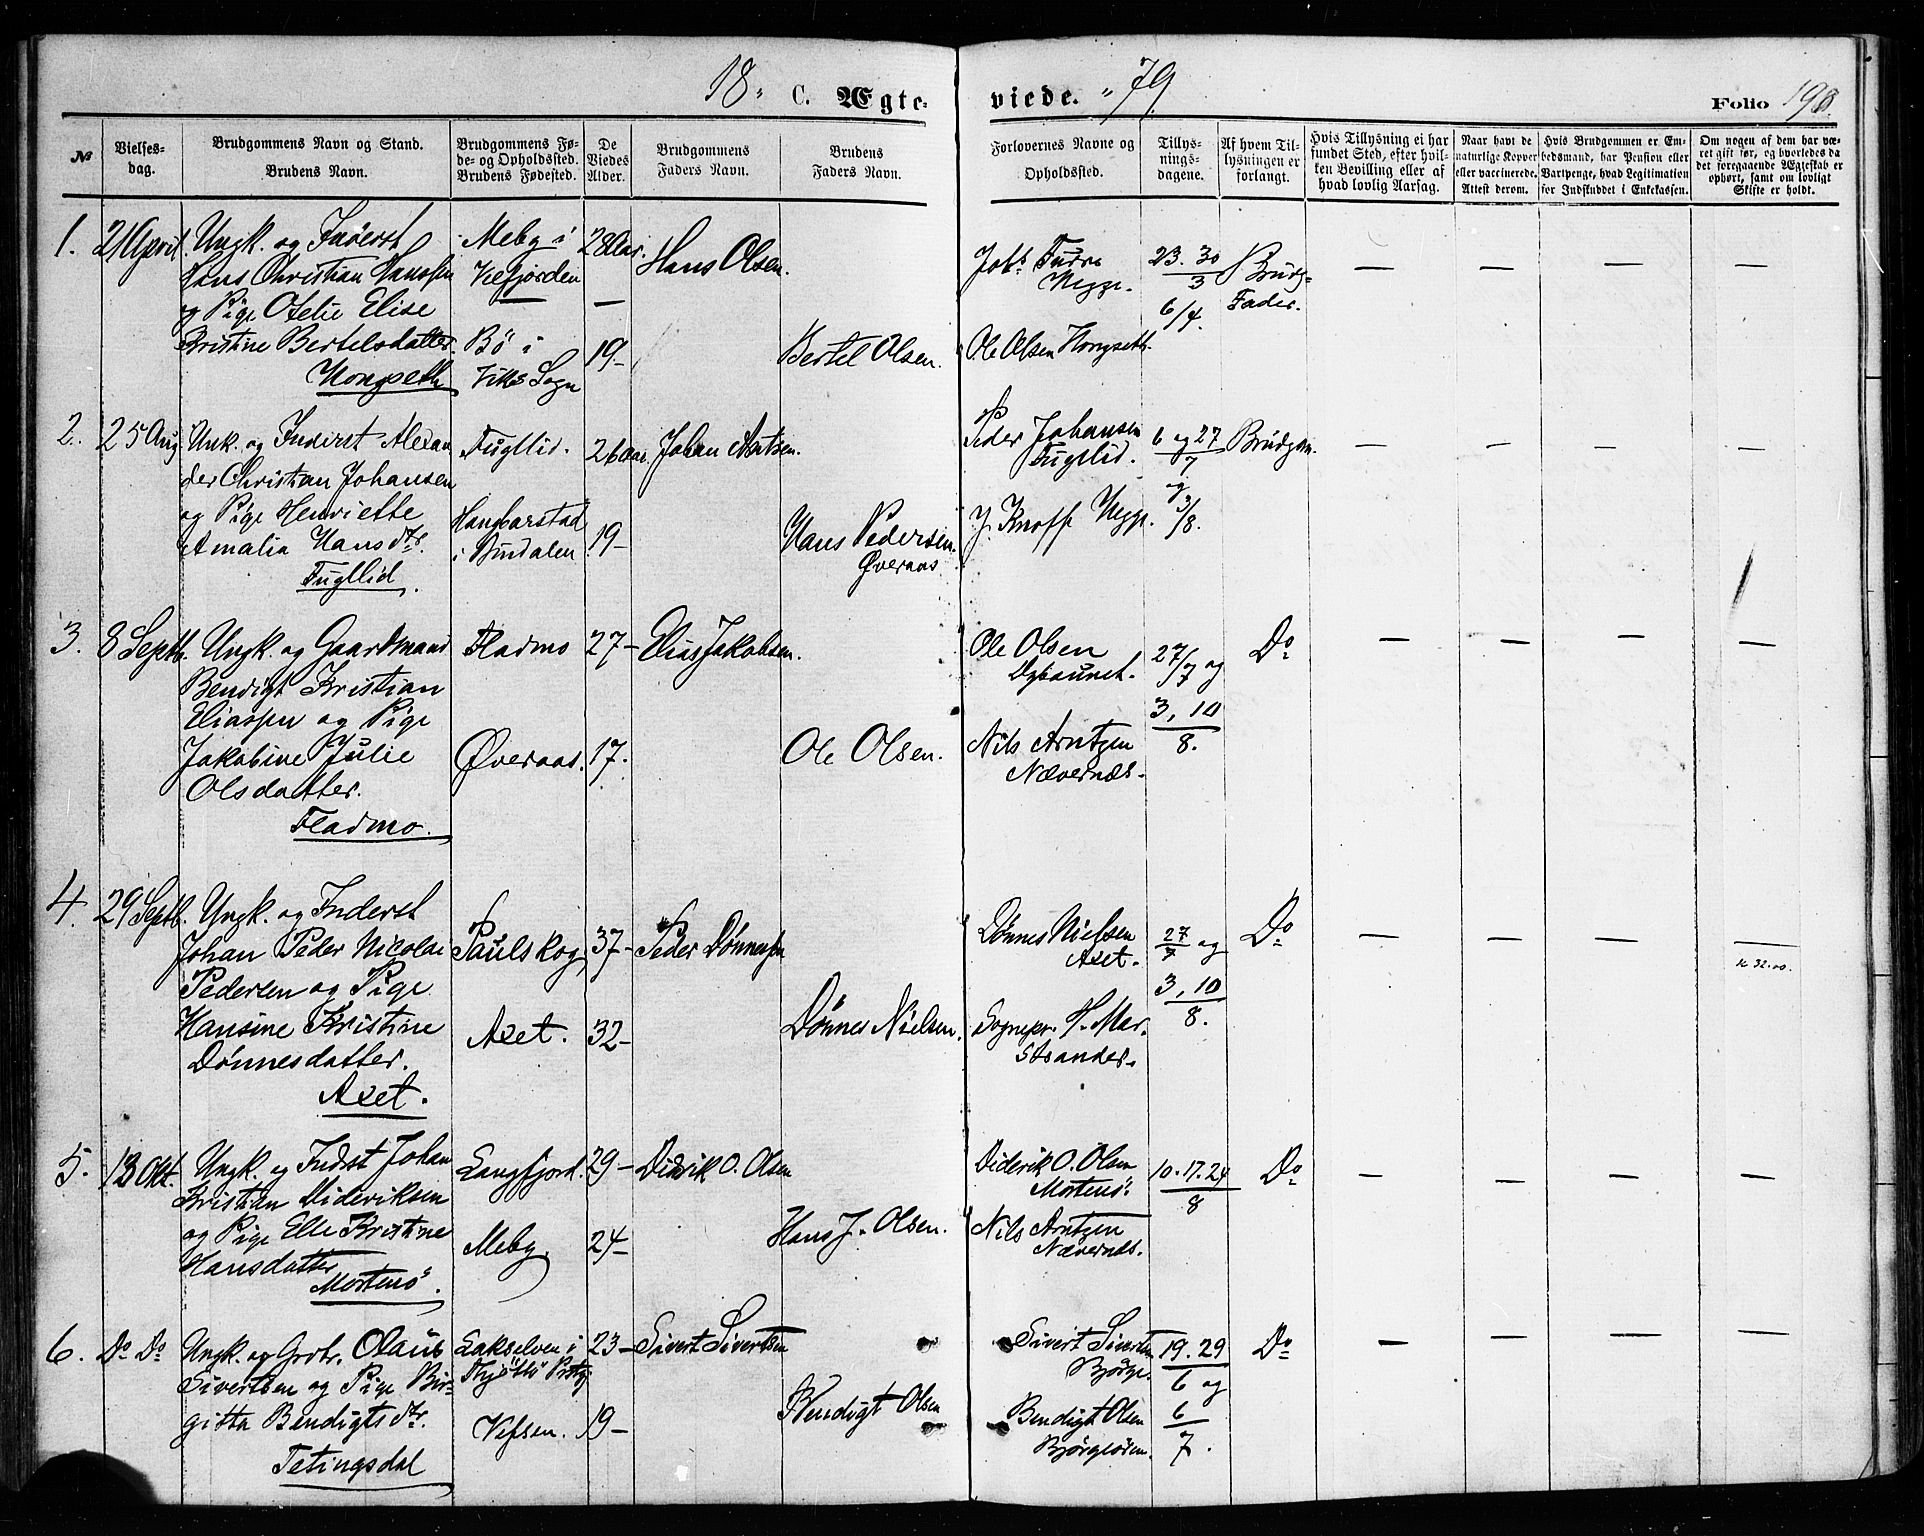 18 C. Ægte-viede. 79. Folio 198.
№
Vielses-dag.
Brudgommens Navn og Stand.
Brudens Navn.
Brudgommens Fø-de- og Opholdssted.
Brudens Fødested.
De Viedes Alder.
Brudgommens Faders Navn.
Brudens Faders Navn.
Forlovernes Navne og Opholdssted.
Tillys-nings-dagene.
Af hvem Til-lysningen er forlangt.
Hvis Tillysning ei har fundet Sted, efter hvil-ken Bevilling eller af hvad lovlig Aarsag.
Naar havt de naturlige Kopper eller vaccinerede. Attest derom.
Hvis Brudgommen er Em-bedsmand, har Pension eller Vartpenge, hvad Legitimation for Indskuddet i Enkekassen.
Om nogen af dem har væ-ret gift før, og hvorledes da det foregaaende Ægteskab er ophørt, samt om lovligt Skifte er holdt.
1. 21 April. Ungk. og Inderst Meby i 28 Aar. Hans Olsen. Johs 23. 30 Brudg-
Hans Christian Hanssen Velfjorden 3 Fader.
og Pige Otelie Elise — 6/4.
Kristine Bertelsdatter. Bö i 19- Bertel Olsen. Ole Olsen Hongseth.
Hongseth Viks Sogn
2. 25 Aug Unk. og Inderst Alexan Fugllid. 26 Aar. Johan Arntsen. Peder Johansen 6 og 27 Brudgom.
der Christian Johansen Fugllid. 7
og Pige Henriette og
Amalia Hans dtr. i Bindalen 19- Hans Pedersen J. Knoff 3/8.
Fugllid. Øveraas
3. 8 Septb. Ungk. og Gaardmand Fladmo 27- Elias Jakobsen. Ole Olsen 27/7 og Do
Bendigt Kristian Dybaunet.
Eliassen og Pige 3, 10
Jakobine Julie Øveraas. 17. Ole Olsen. Nils Arntzen 8.
Olsdatter. Nævernæs.
Fladmo.
4. 29 Septb. Ungk. og Inderst
Johan Peder Nicolai Paulskog 37- Peder Dönnessen Dönnes Nielsen 27/7 og Do
Pedersen og Pige Axet. 3, 10
Hansine Kristine Axet. 32- Dönnes Nielsen. Sognepr. H. Mar- 8.
Dönnesdatter. strander.
Axet.
5. 13 Okt. Ungk. og Inderst Johan Langfjord. 29- Didrik O. Olsen Diderik O. Olsen 10. 17. 24 Do
Kristian Dideriksen Mortensö. 8
og Pige Elle Kristine Meby. 24- Hans J. Olsen. Nils Arntzen
Hansdatter Nævernæs.
Mortensö.
6. Do Do Ungk. og Grbr. Olaus Lakselven i 23- Sivert Sivertsen Sivert Sivertsen 19. 29 Do
Sivertsen og Pige Bir- Thjöttö Bjørge. 6 og
gitta Bendigts dtr. Vefsen. 19- Bendigt Olsen Bendigt Olsen 6
Tetingsdal 7.